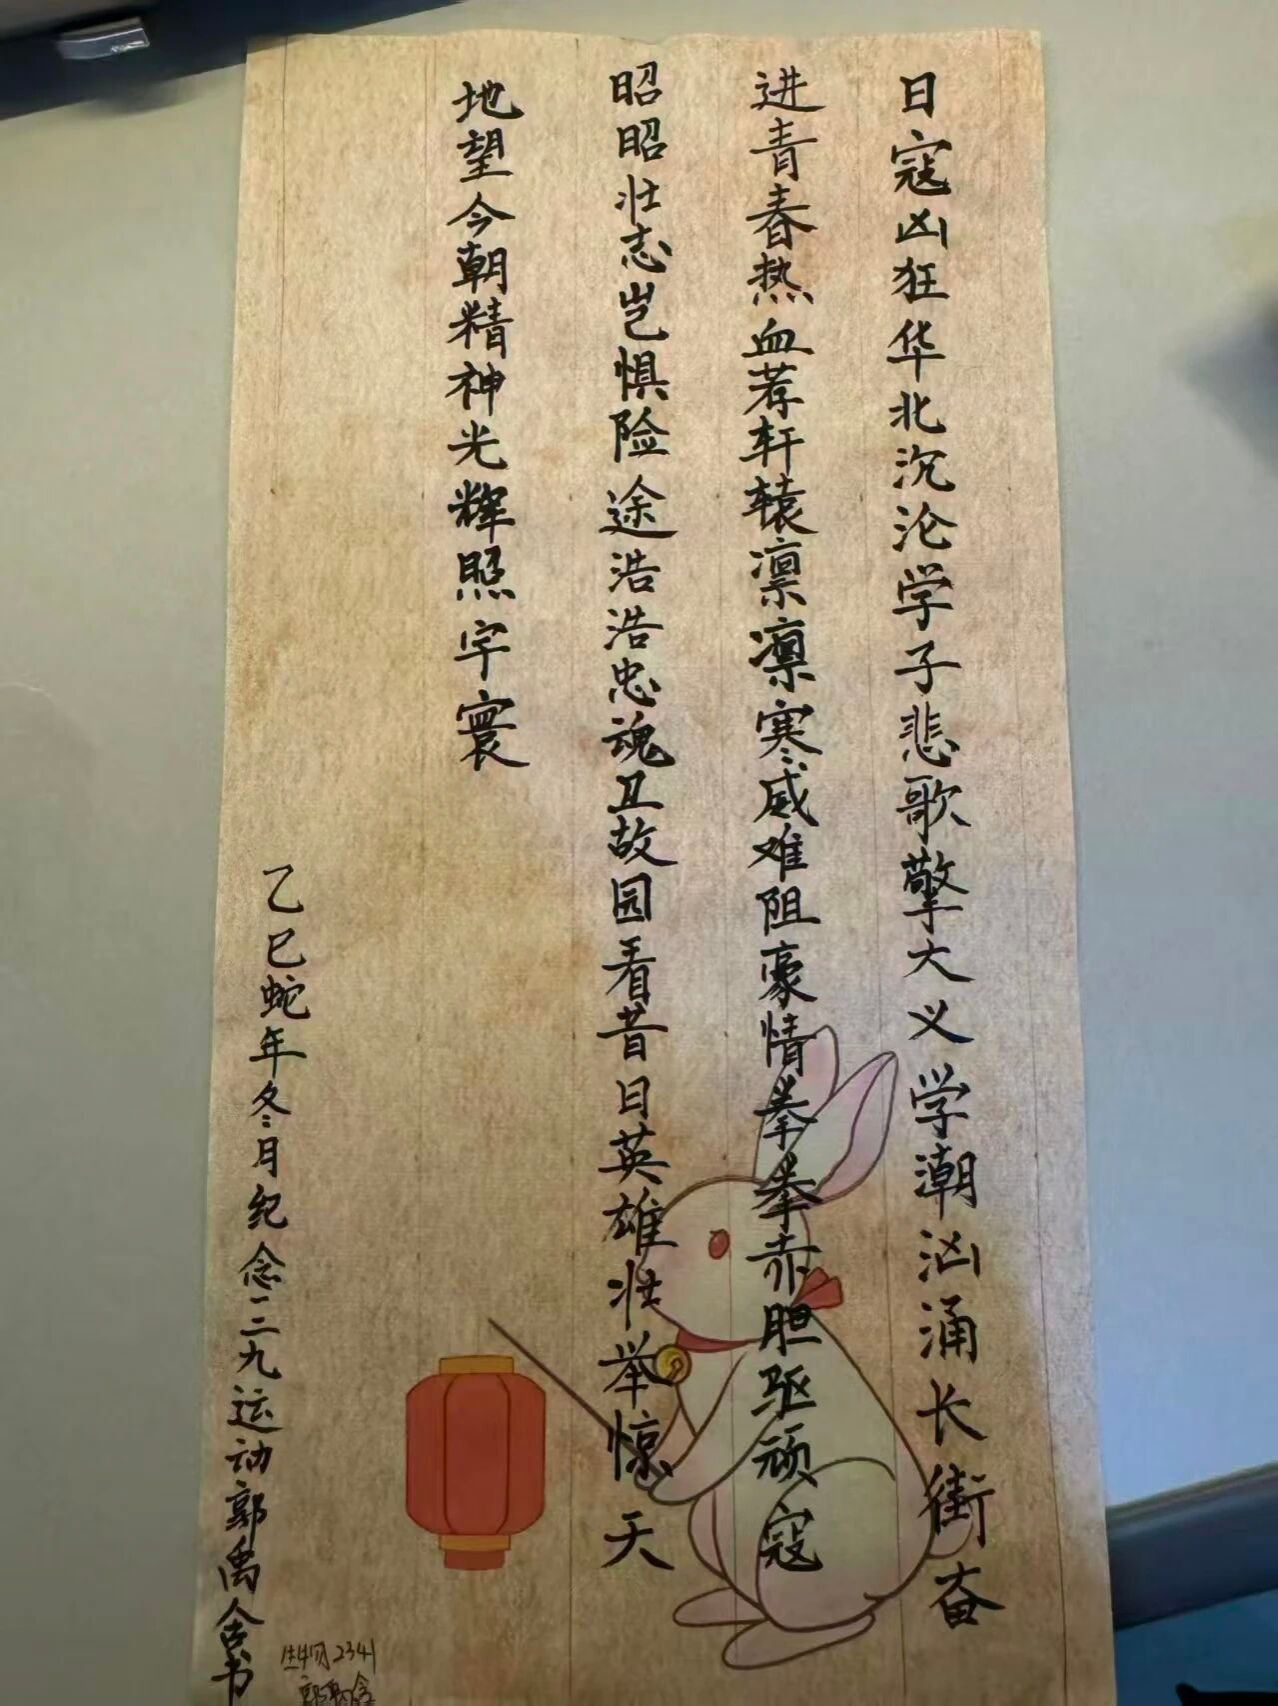 日寇凶狂华北沉沦学子悲歌擎大义学潮汹涌长街奋
进青春热血荐轩辕凛凛寒威难阻豪情拳拳赤胆驱顽寇
昭昭壮志岂惧险途浩浩忠魂卫故园看昔日英雄壮举惊天
地望今朝精神光辉照宇寰
乙巳蛇年冬月纪念一二九运动郭禹含书
生物2341